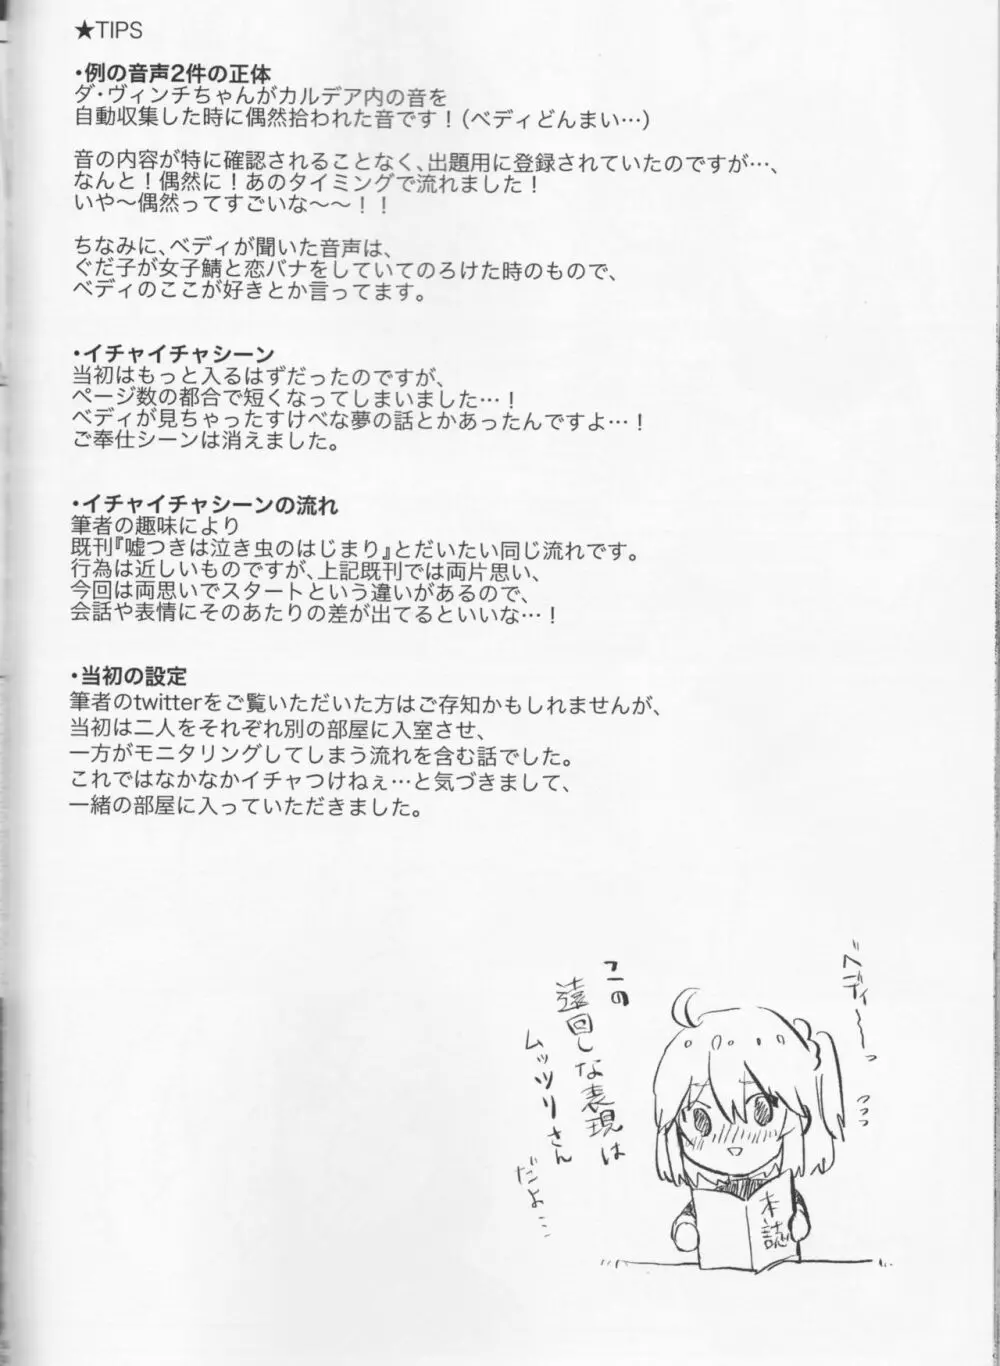 ★TIPS
・例の音声2件の正体
ダ・ヴィンチちゃんがカルデア内の音を
自動収集した時に偶然拾われた音です！(ベディどんまい…)
音の内容が特に確認されることなく、出題用に登録されていたのですが…、
なんと！偶然に！あのタイミングで流れました！
いや～偶然ってすごいな～～！！
ちなみに、ベディが聞いた音声は、
ぐだ子が女子鯖と恋バナをしていてのろけた時のもので、
ベディのここが好きとか言ってます。
・イチャイチャシーン
当初はもっと入るはずだったのですが、
ページ数の都合で短くなってしまいました…！
ベディが見ちゃったすけべな夢の話とかあったんですよ…！
ご奉仕シーンは消えました。
・イチャイチャシーンの流れ
筆者の趣味により
既刊『嘘つきは泣き虫のはじまり』とだいたい同じ流れです。
行為は近しいものですが、上記既刊では両片思い、
今回は両思いでスタートという違いがあるので、
会話や表情にそのあたりの差が出てるといいな…！
・当初の設定
筆者のtwitterをご覧いただいた方はご存知かもしれませんが、
当初は二人をそれぞれ別の部屋に入室させ、
一方がモニタリングしてしまう流れを含む話でした。
これではなかなかイチャつけねぇ…と気づきまして、
一緒の部屋に入っていただきました。
ベディ～～っ
っっっ
この
遠回しな表現は
ムッツリさん
だよ…
本誌